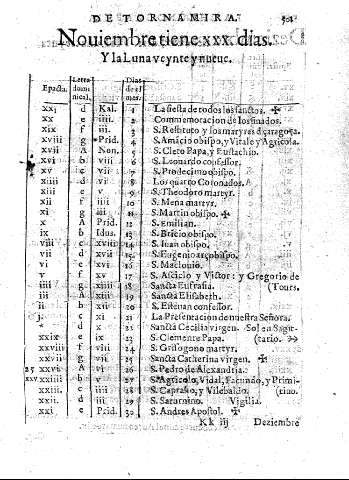 DE TORNAMIRA.
Nouiembre tiene xxx. dias.
Y la Luna veynte y nueue.
Epacta. Letra domi nical. Dias de el mes.
xxj d Kal. 1 La fiesta de todos los sanctos. ✠
xx e iiij. 2 Commemoracion de los finados.
xix f iij. 3 S. Restituto y los martyres de çaragoça.
xviij g Prid. 4 S. Amacio obispo, y Vitale y Agricola.
xvii A Non. 5 S. Cleto Papa, y Eustachio.
xvi b viij 6 S. Leonardo confessor.
xv c vij 7 S. Prodecimo obispo.
xiiij d vi 8 Los quarto Coronados.
xiij e v 9 S. Theodoro martyr.
xij f iiij 10 S. Mena martyr.
xi g iij 11 S. Martin obispo. ✠
x A Prid. 12 S. Emilian.
ix b Idus. 13 S. Bricio obispo.
viij c xviij 14 S. Iuan obispo.
vii d xvij 15 S. Eugenio arçobispo.
vi e xvi 16 S. Maclouio.
v f xv 17 S. Ascicio y Victor: y Gregorio de
iiij g xiiij 18 Sancta Eufrasia. (Tours.
iij A xiij 19 Sancta Elisabeth.
ii b xij 20 S. Esteuan confessor.
j. c xi 21 La Presentacion de nuestra Señora.
* d x 22 Sancta Cecilia virgen. Sol en Sagit
xxix e ix 23 S. Clemente Papa. (tario.
xxviij f viij 24 S. Grisogono martyr.
xxvij g vij 25 Sancta Catherina virgen. ✠
25 xxvi A vi 26 S. Pedro de Alexandria.
xxv xxiiij b v 27 S. Agricolo, Vidal, Facundo, y Primi-
xxiij. c iiij 28 S. Caprasio, y Vibaldo. (tiuo.
xxij. d iij 29 S. Saturnino. Vigilia.
xxi. e Prid. 30 S. Andres Apostol. ✠
Kk iij Deziembre